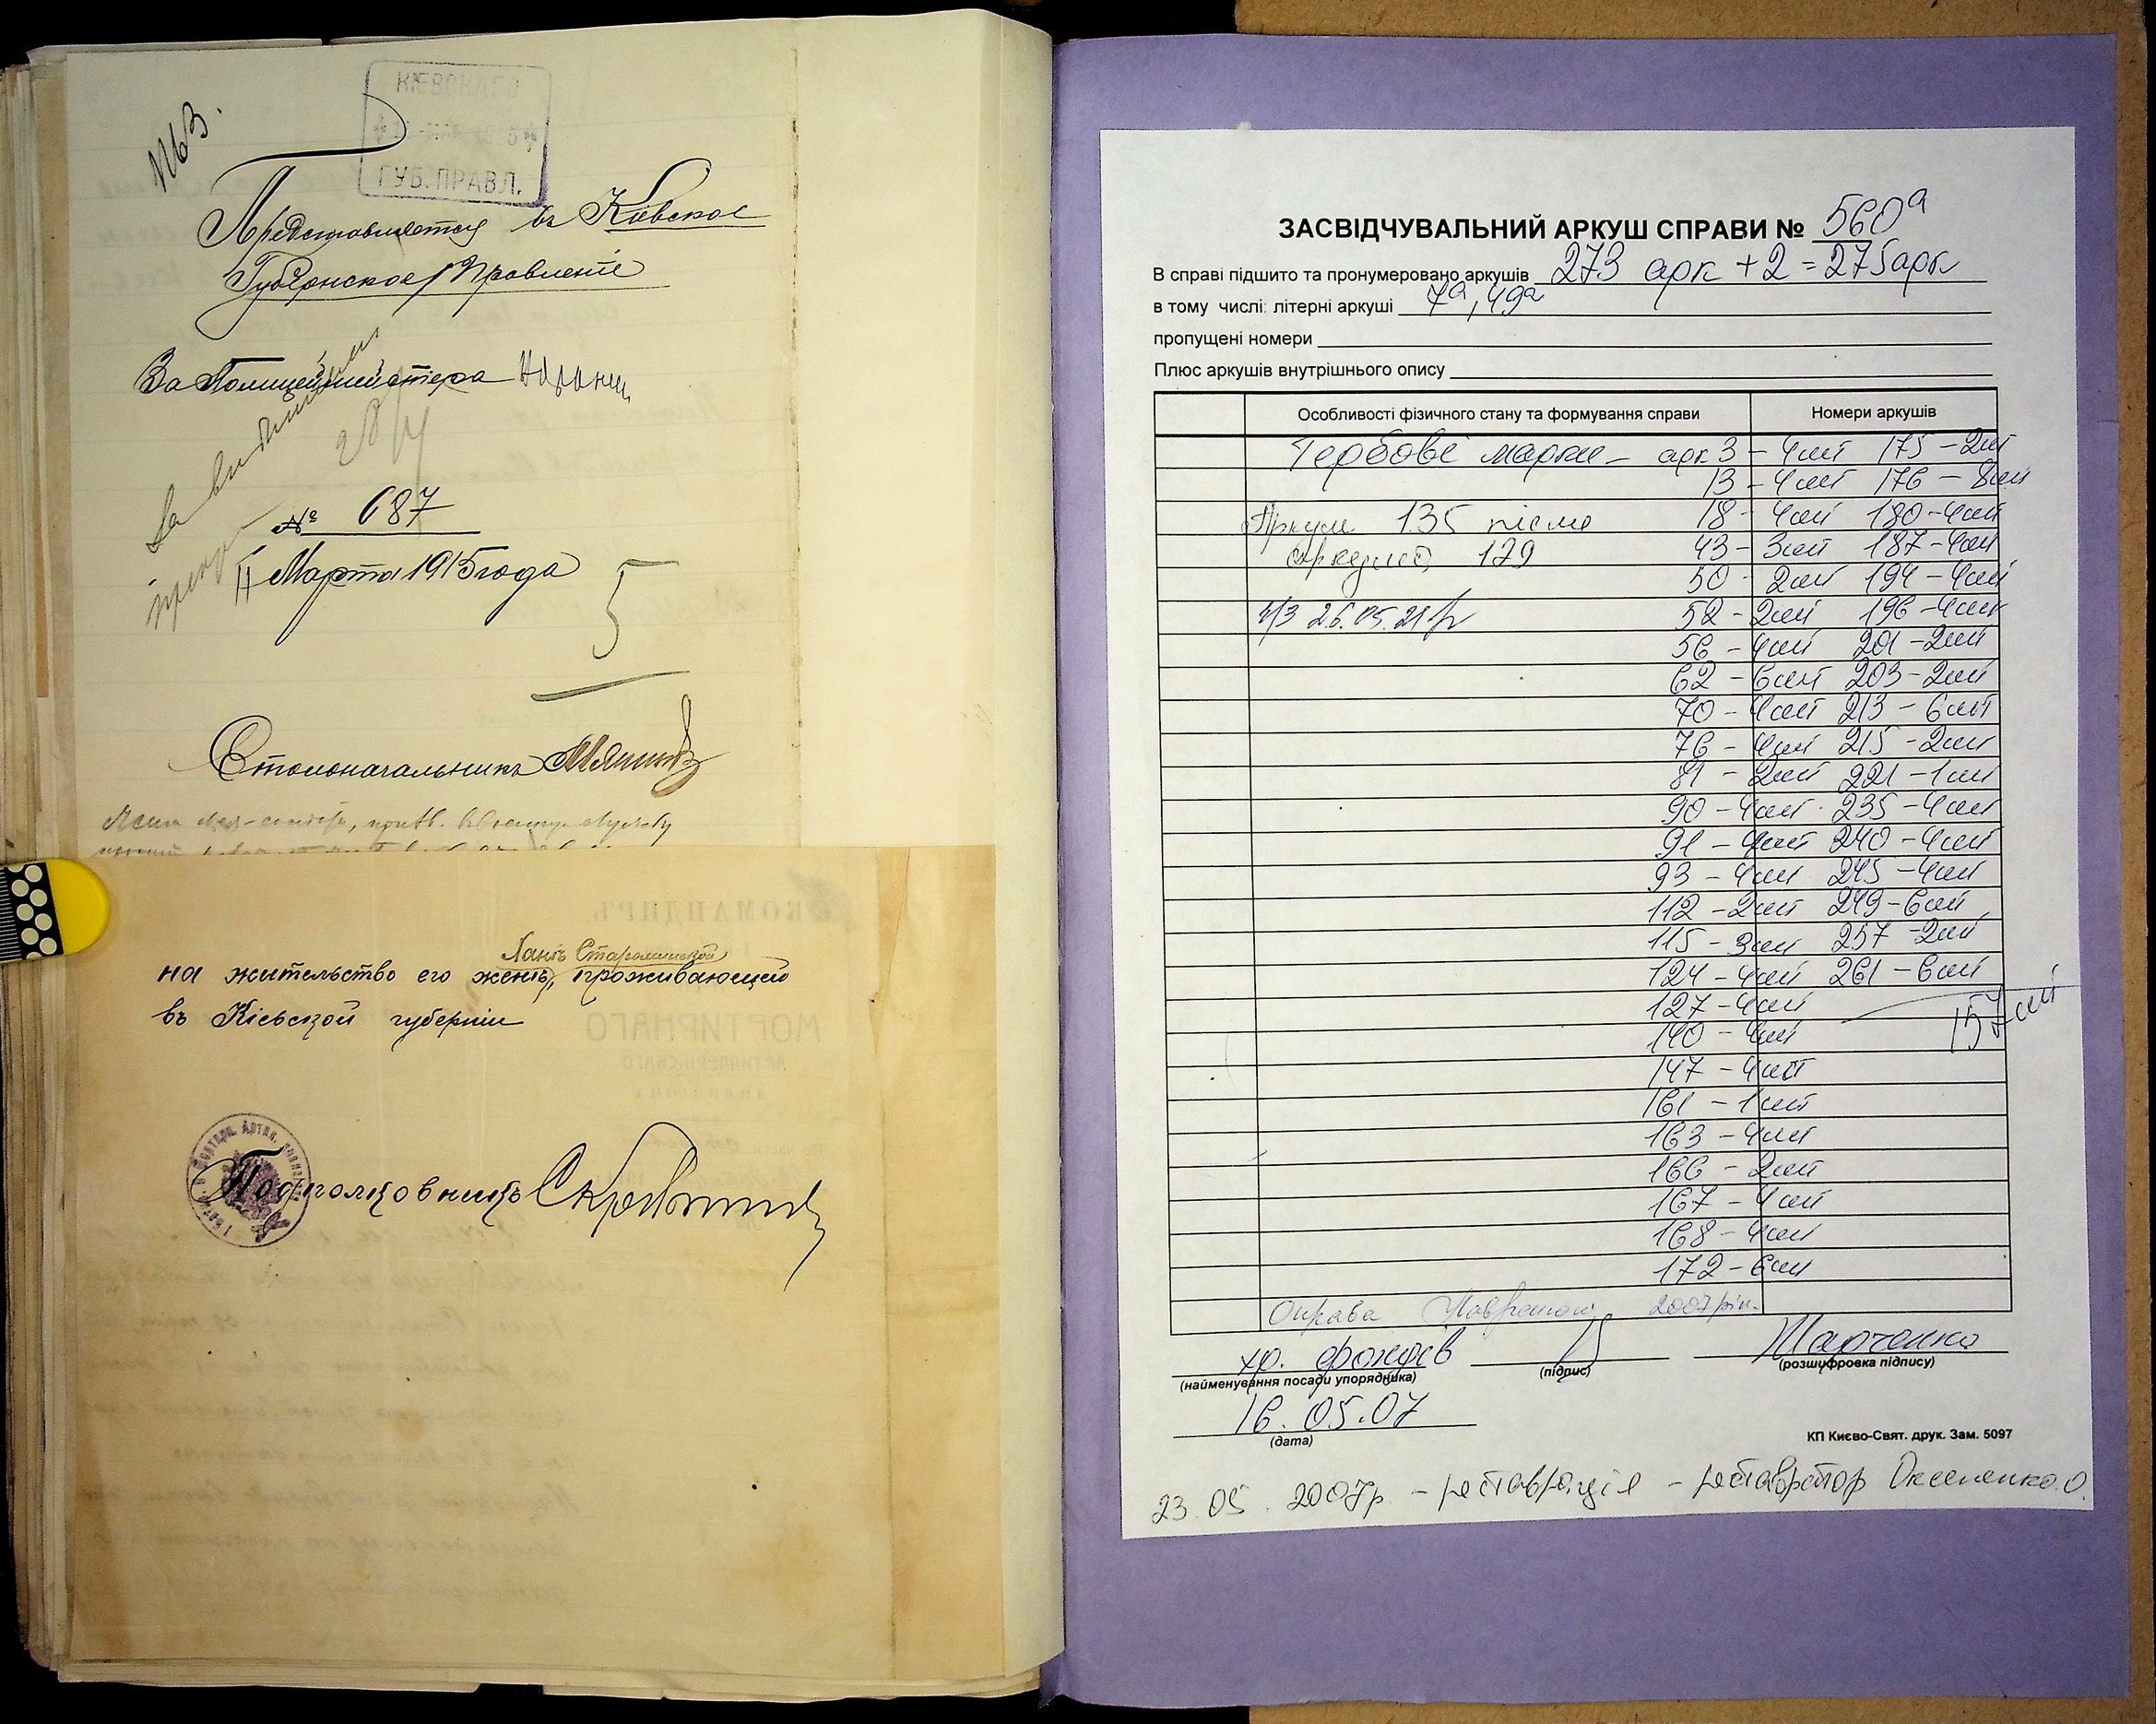 №3.
КІЕВСКАГО
ГУБ. ПРАВЛ.
Представляется въ Кіевское
Губернское Правленіе
За Полицеймейстера
№ 687
11 Марта 1915 года
5
Столоначальникъ
Ханѣ Старолинской
на жительство его женѣ, проживающей
въ Кіевской губерніи
Подполковникъ
ЗАСВІДЧУВАЛЬНИЙ АРКУШ СПРАВИ № 560а
В справі підшито та пронумеровано аркушів 273 арк + 2 = 275 арк
в тому числі: літерні аркуші 7а, 49а
пропущені номери
Плюс аркушів внутрішнього опису
Особливості фізичного стану та формування справи Номери аркушів
Гербові марки – арк 3 – 4шт 175 – 2шт
13 – 4шт 176 – 8шт
Аркуш 135 після 18 – 4шт 180 – 4шт
аркуша 129 43 – 3шт 187 – 4шт
50 – 2шт 194 – 4шт
26.05.21 52 – 2шт 196 – 4шт
56 – 4шт 201 – 2шт
62 – 6шт 203 – 2шт
70 – 4шт 213 – 6шт
76 – 4шт 215 – 2шт
81 – 2шт 221 – 1шт
90 – 4шт 235 – 4шт
91 – 4шт 240 – 4шт
93 – 4шт 245 – 4шт
112 – 2шт 249 – 6шт
115 – 3шт 257 – 2шт
124 – 4шт 261 – 6шт
127 – 4шт 157шт
140 – 4шт
147 – 4шт
161 – 1шт
163 – 4шт
166 – 2шт
167 – 4шт
168 – 4шт
172 – 6шт
Оправа 2007 рік.
хр. фондів Марченко
(найменування посади упорядника) (підпис) (розшифровка підпису)
16.05.07
(дата)
КП Києво-Свят. друк. Зам. 5097
23.05.2007р. – реставрація – реставратор Оксененко О.